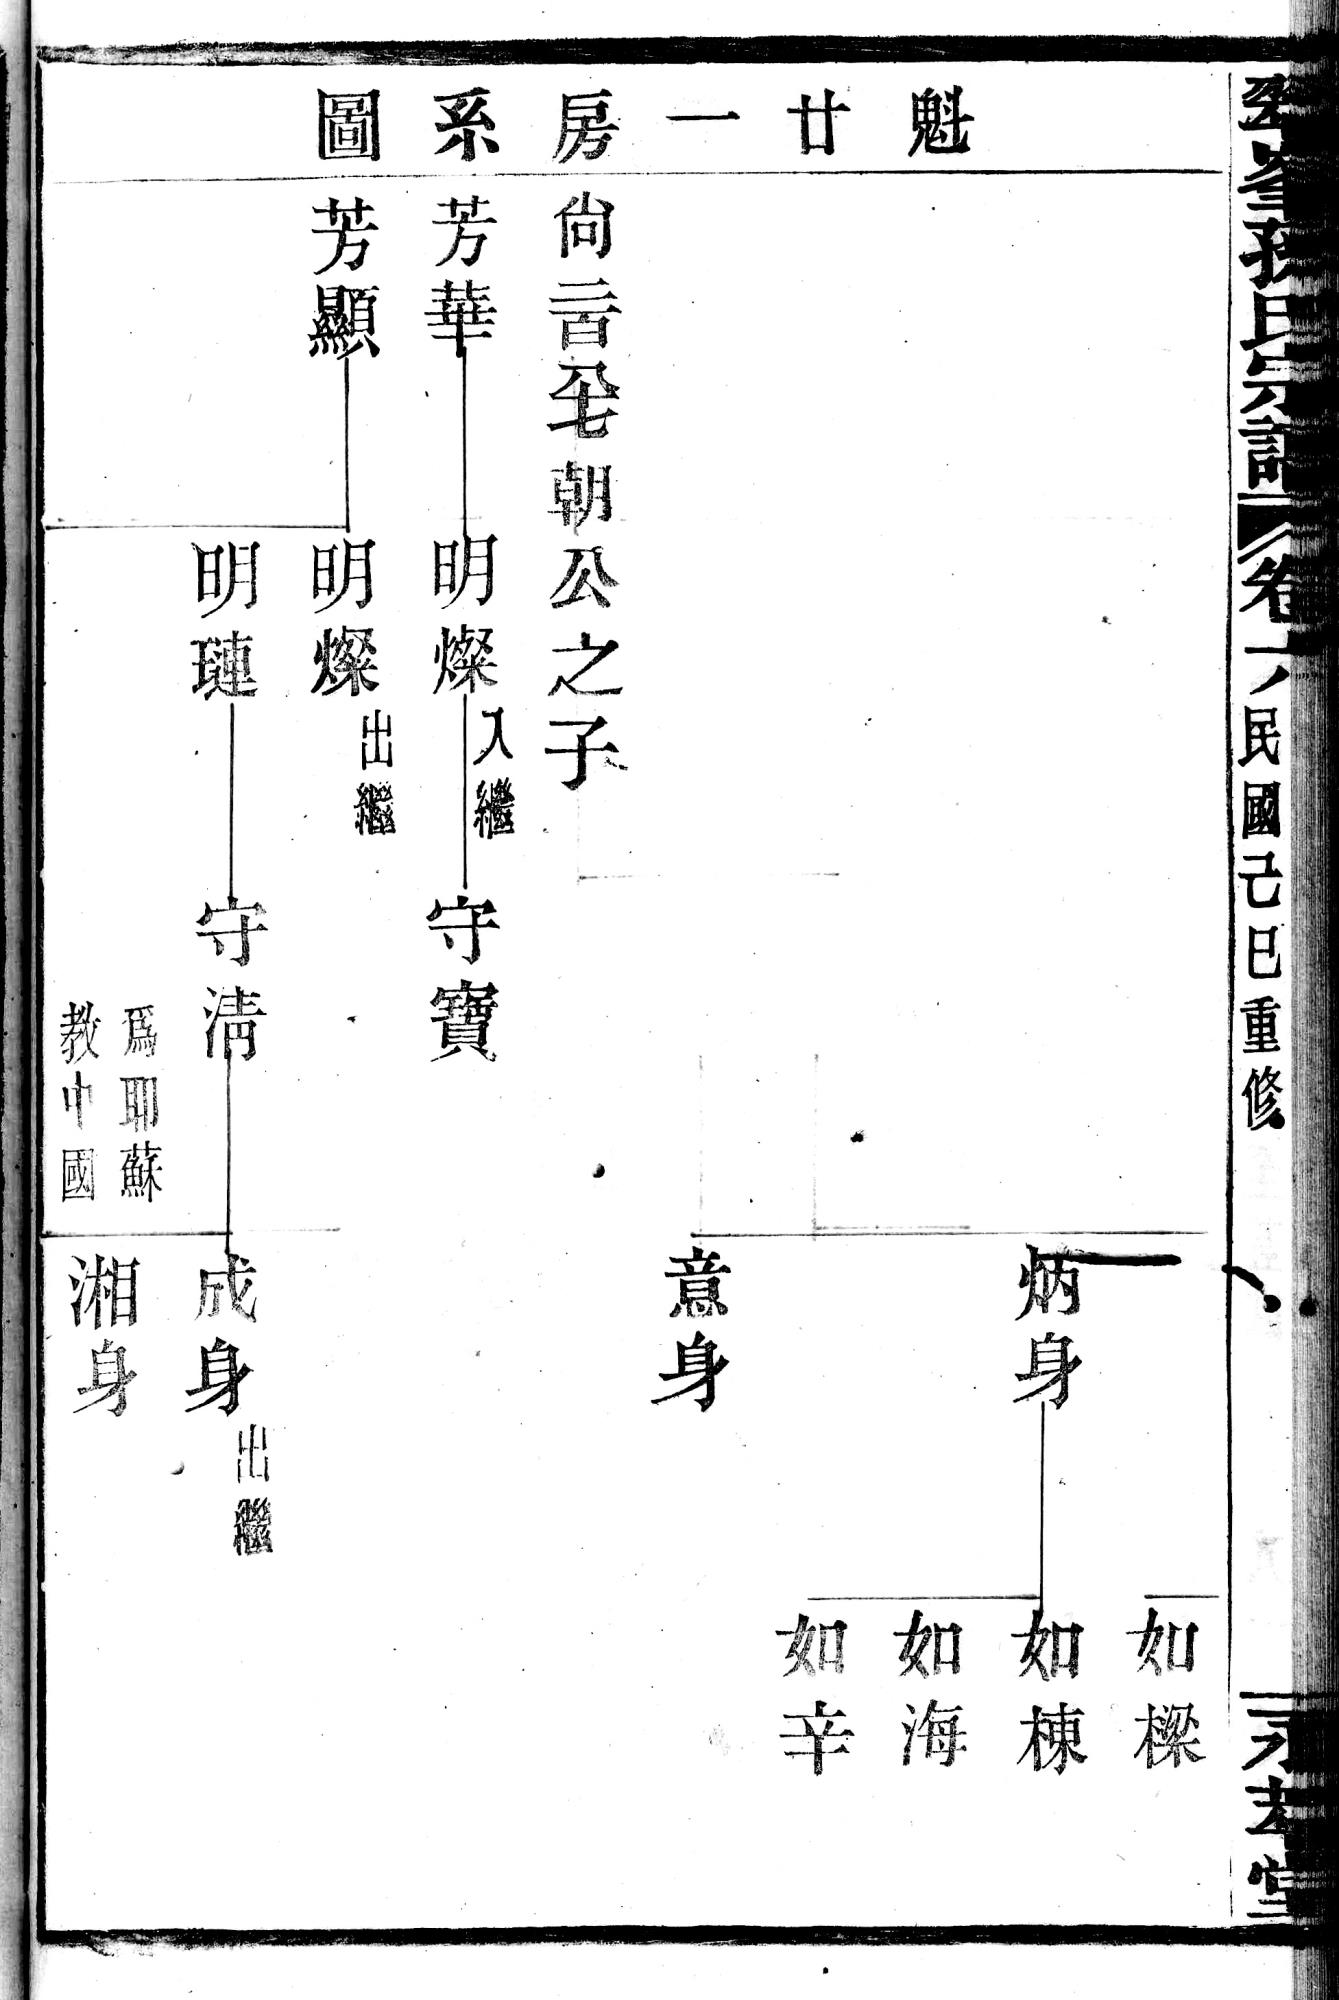 魁廿一房系圖
氏宗譜
卷
民國己巳重修
堂
如樑
炳身
如棟
如海
如辛
意身
尙
朝公之子
芳華
明燦
入繼
守寶
芳顯
明燦
出繼
明璉
守淸
成身
出繼
爲耶蘇
教中國
湘身